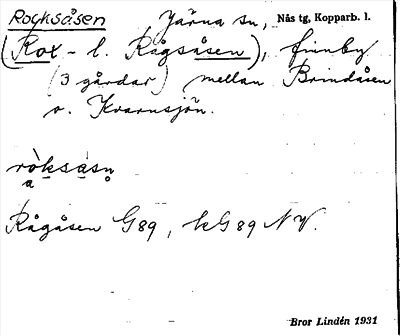 Rocksåsen Järna sn, Nås tg, Kopparb. l.
(Rox- l. Rågsåsen), finnby
(3 gårdar) mellan Brindåsen
o. Kvarnsjön.
ròksásn
a
Rågåsen G89, kG89 NV.
Bror Lindén 1931